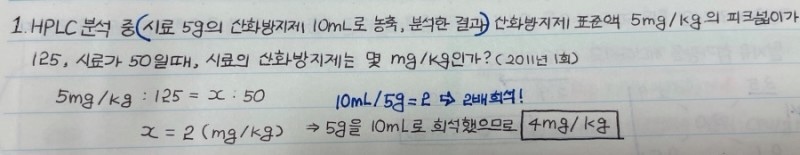 1. HPLC 분석 중(시료 5g의 산화방지제 10mL로 농축, 분석한 결과) 산화방지제 표준액 5mg/kg의 피크넓이가
125, 시료가 50일때, 시료의 산화방지제는 몇 mg/kg인가? (2011년 1회)
5mg/kg : 125 = x : 50 10mL/5g = 2 ⇒ 2배희석!
x = 2 (mg/kg) ⇒ 5g을 10mL로 희석했으므로 4mg/kg